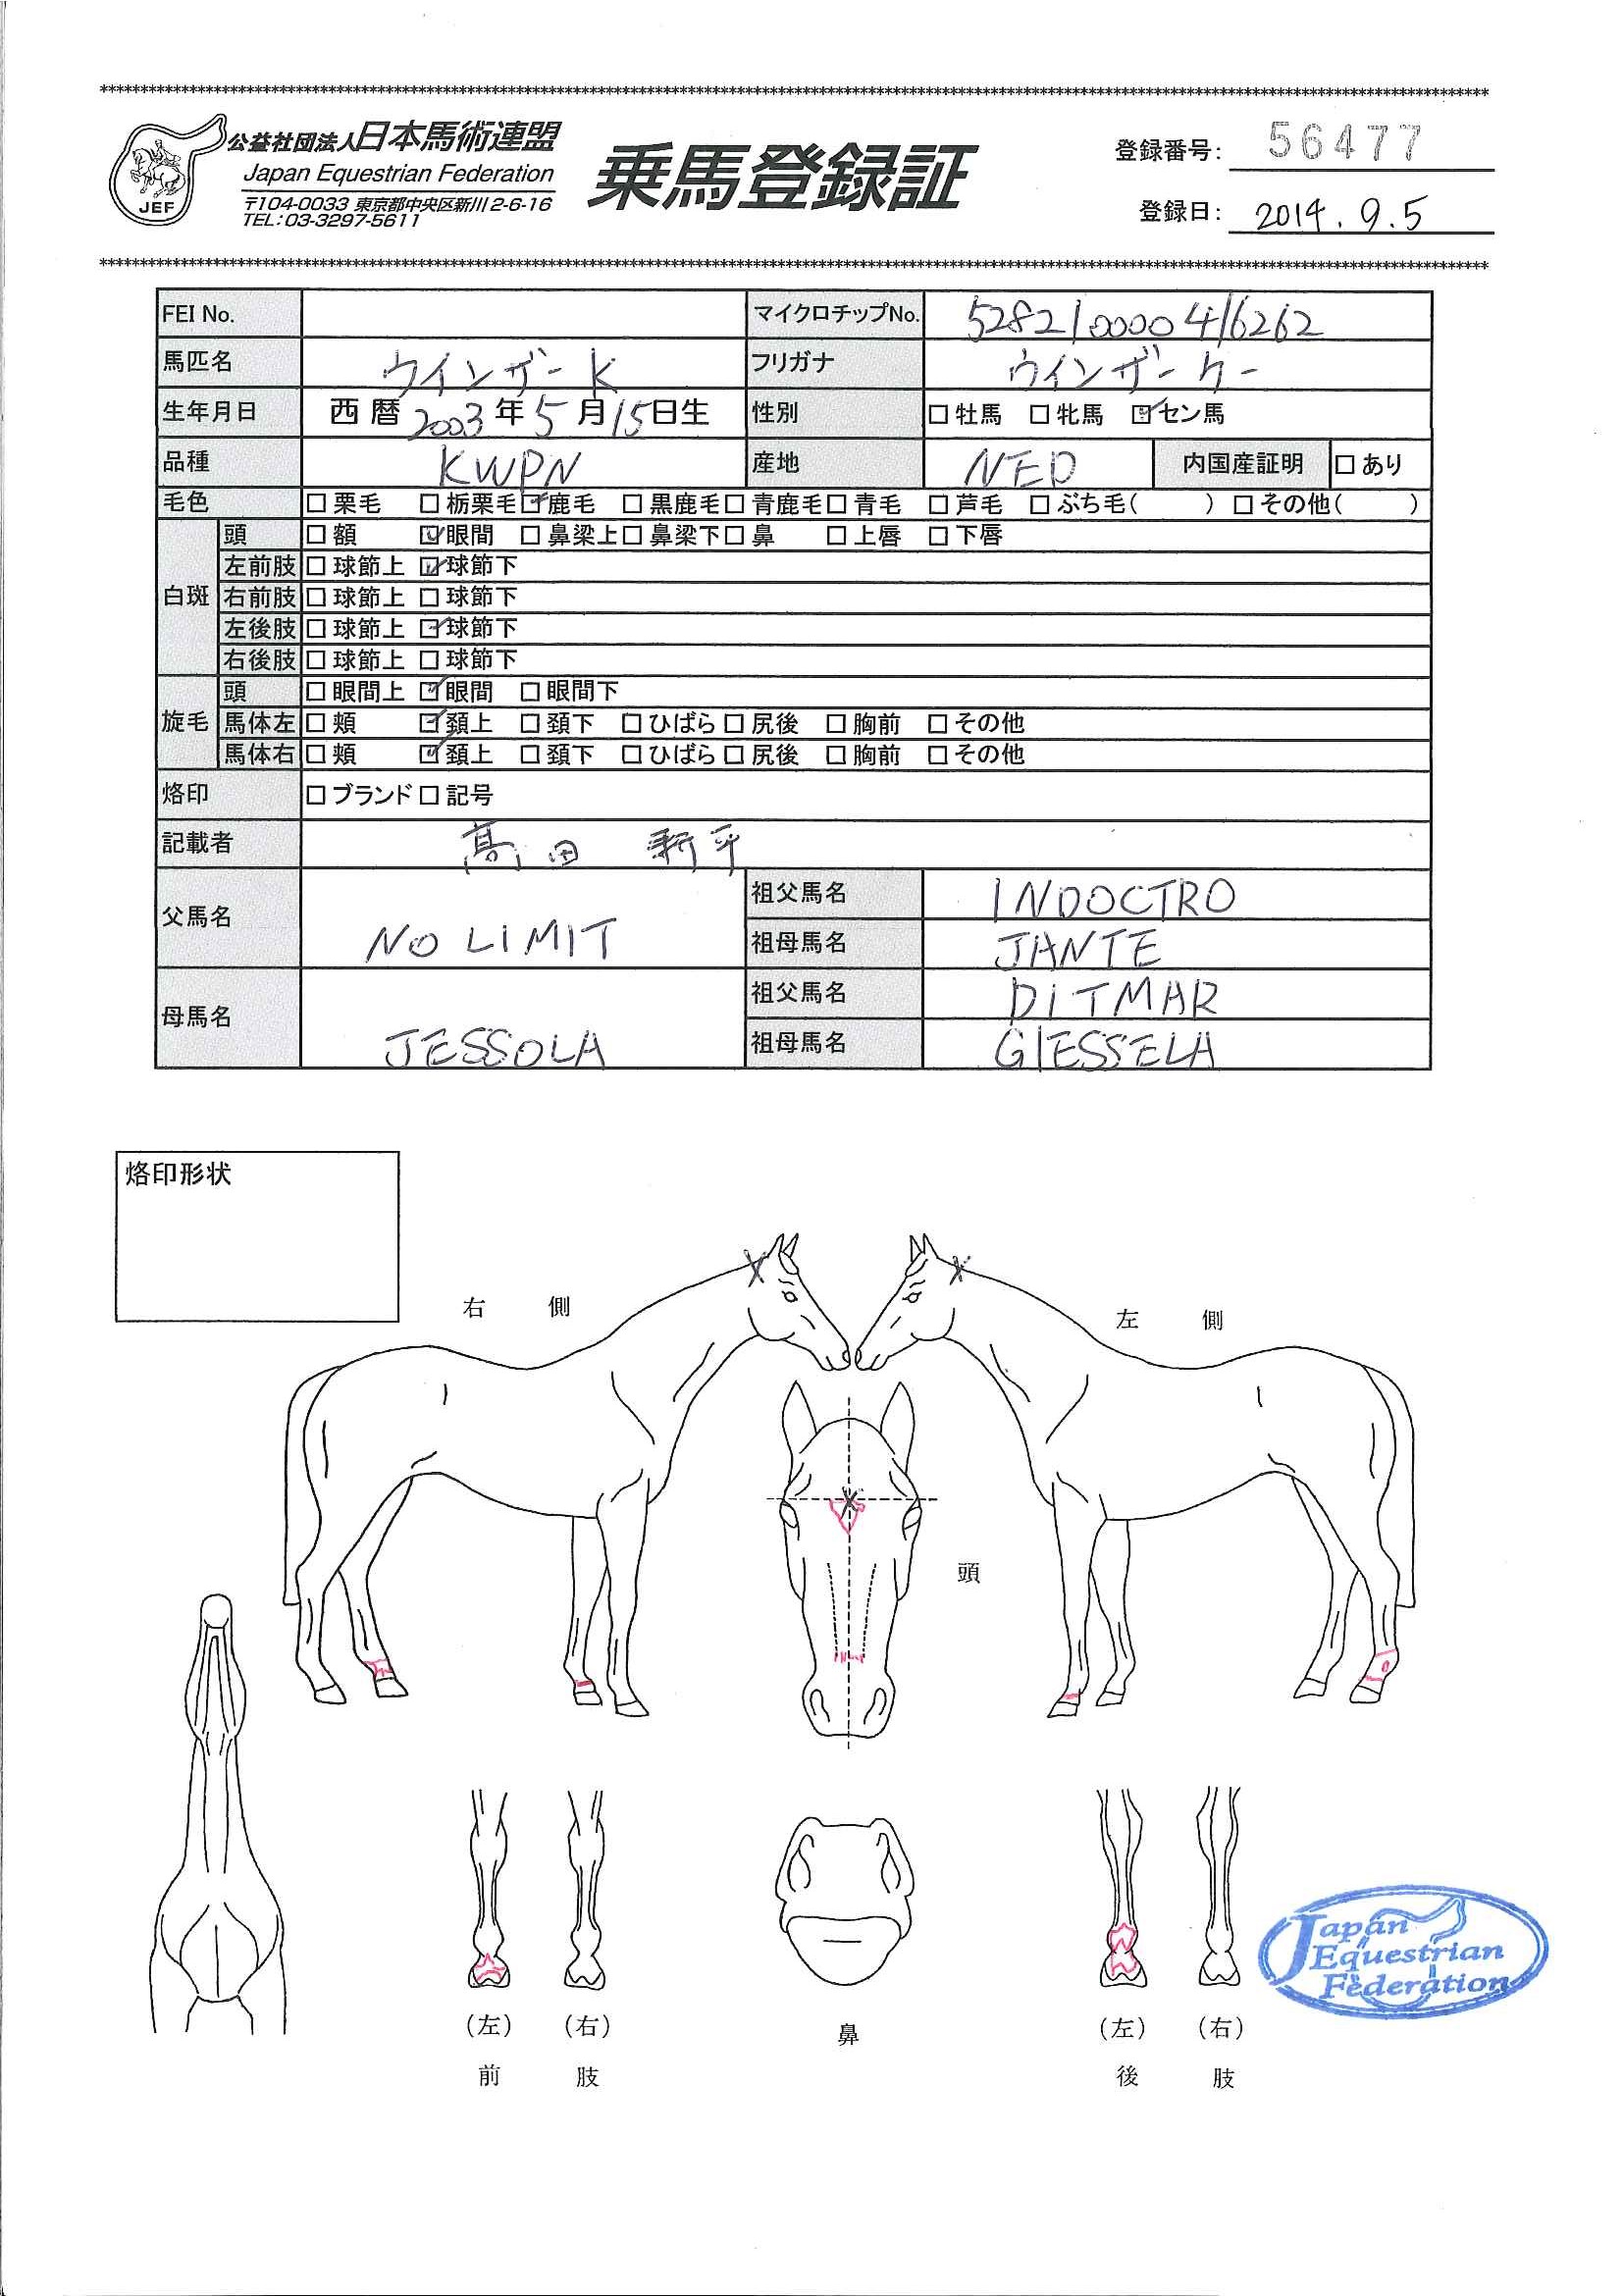 公益社団法人日本馬術連盟
Japan Equestrian Federation
〒104-0033 東京都中央区新川2-6-16
TEL:03-3297-5611
JEF
乗馬登録証
登録番号: 56477
登録日: 2014.9.5
FEI No. マイクロチップNo. 528210000416262
馬匹名 ウインザーK フリガナ ウインザーケー
生年月日 西暦2003年5月15日生 性別 □牡馬 □牝馬 ☑セン馬
品種 KWPN 産地 NED 内国産証明 □あり
毛色 □栗毛 □栃栗毛 ☑鹿毛 □黒鹿毛 □青鹿毛 □青毛 □芦毛 □ぶち毛( ) □その他( )
白斑 頭 □額 ☑眼間 □鼻梁上 □鼻梁下 □鼻 □上唇 □下唇
左前肢 □球節上 ☑球節下
右前肢 □球節上 □球節下
左後肢 □球節上 ☑球節下
右後肢 □球節上 □球節下
旋毛 頭 □眼間上 ☑眼間 □眼間下
馬体左 □頬 ☑頚上 □頚下 □ひばら □尻後 □胸前 □その他
馬体右 □頬 ☑頚上 □頚下 □ひばら □尻後 □胸前 □その他
烙印 □ブランド □記号
記載者 高田 新平
父馬名 NO LIMIT 祖父馬名 INDOCTRO
祖母馬名 JANTE
母馬名 JESSOLA 祖父馬名 DITMAR
祖母馬名 GIESSELA
烙印形状
右 側
左 側
頭
(左) (右)
前 肢
鼻
(左) (右)
後 肢
Japan
Equestrian
Federation